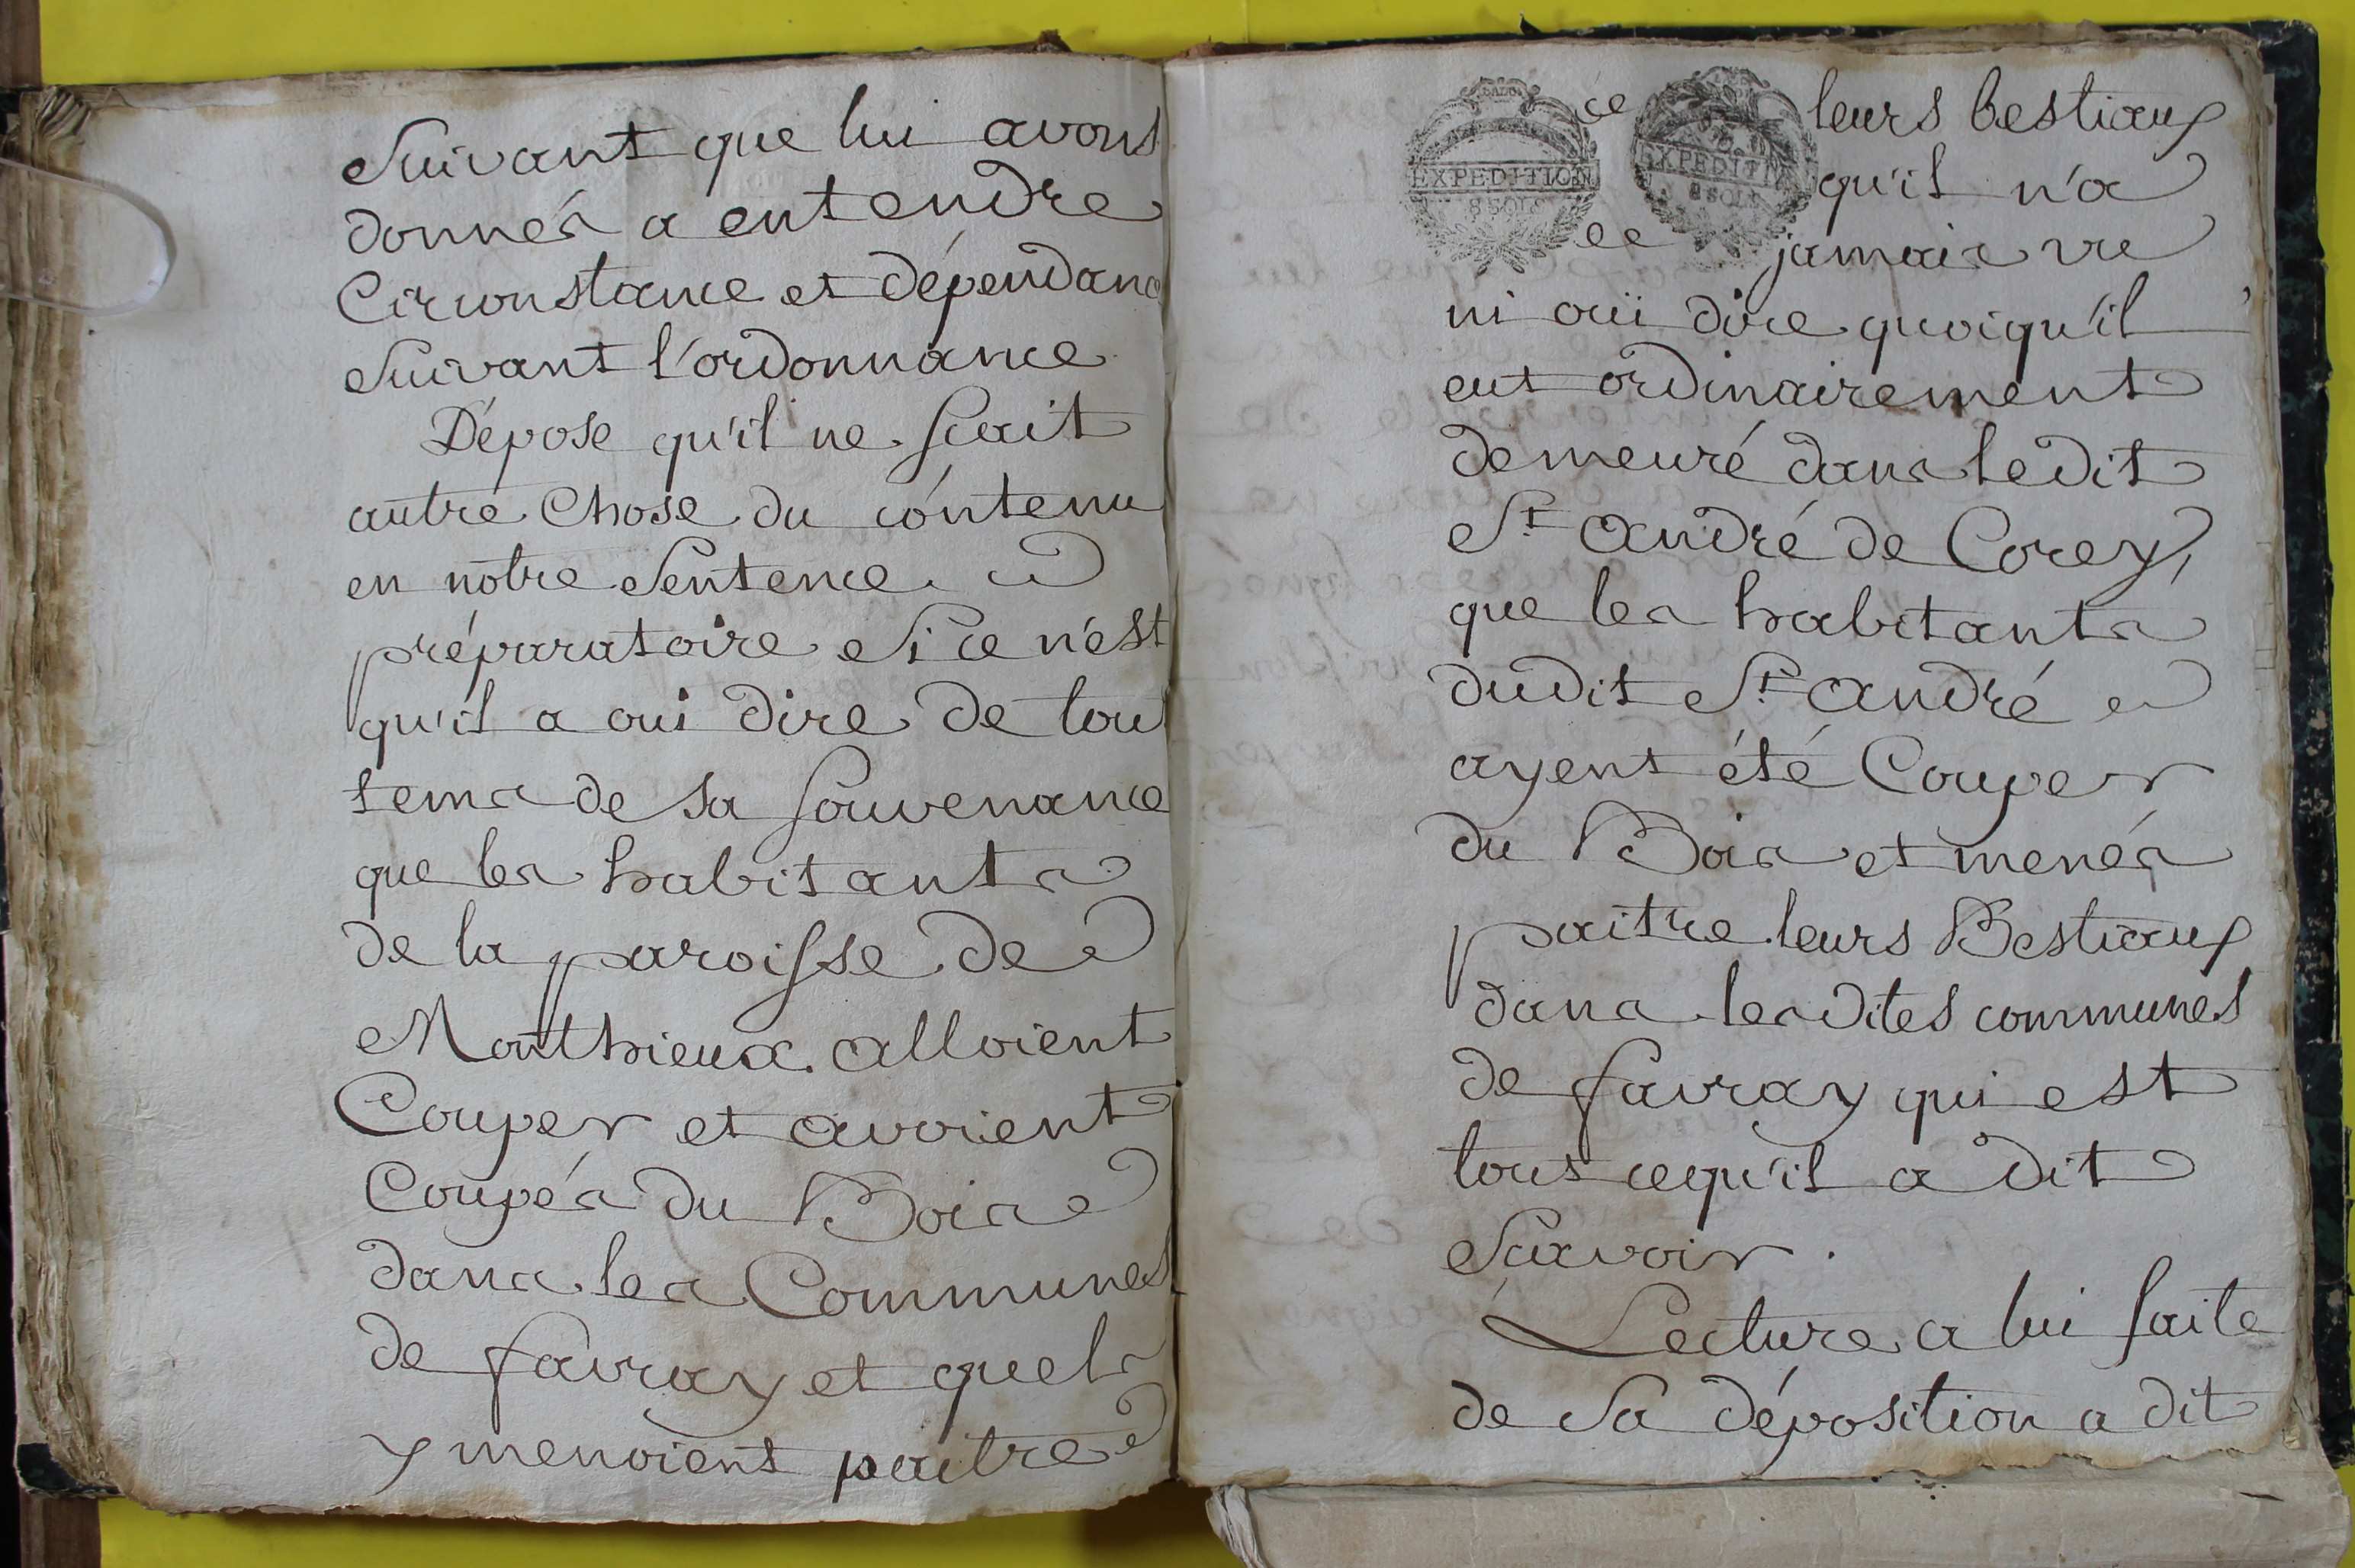 Suivant que lui avons
donnés a entendre
Circonstance et dépendanc
Suivant l'ordonnance
Dépose qu'il ne scait
autre Chose du contenu
en notre Sentence
préparatoire Si ce n'est
qu'il a oui dire de tout
tems de sa souvenance
que les habitants
de la paroisse de
Monthieux alloient
Couper et avoient
Coupés du Bois
dans les Communes
de favray et quels
y menoient paitre
leurs bestiaux
EXPEDITION
8 SOLS
EXPEDITI
8 SOLS
qu'il n'a
jamais vu
ni oüi dire quoiqu'il
eut ordinairement
demeuré dans ledit
St André de Corcy,
que les habitants
dudit St André
ayent été Couper
du Bois et menés
paitre leurs Bestiaux
dans lesdites communes
de favray qui est
tout cequ'il a dit
Savoir.
Lecture a lui faite
de Sa déposition a dit